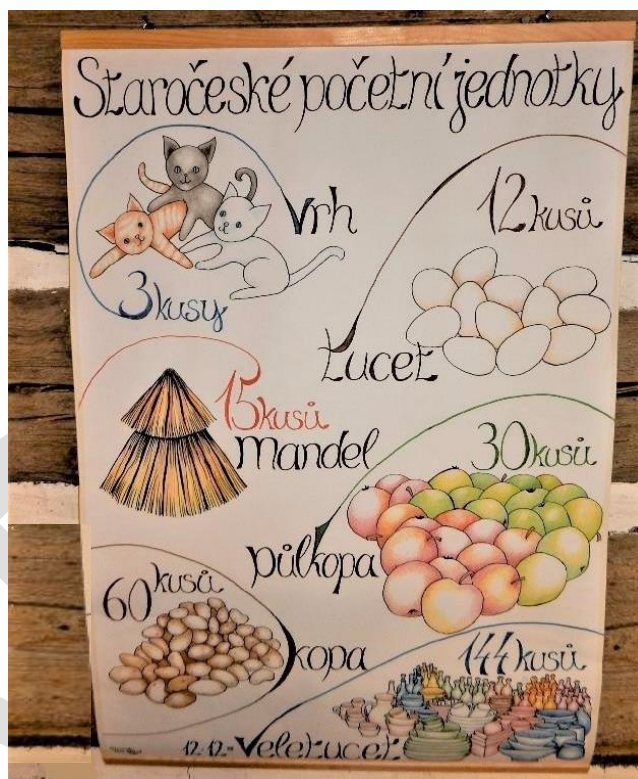 Staročeské početní jednotky
Vrh
3 kusy
12 kusů
tucet
15 kusů
mandel
30 kusů
půlkopa
60 kusů
kopa
144 kusů
12·12= Veletucet